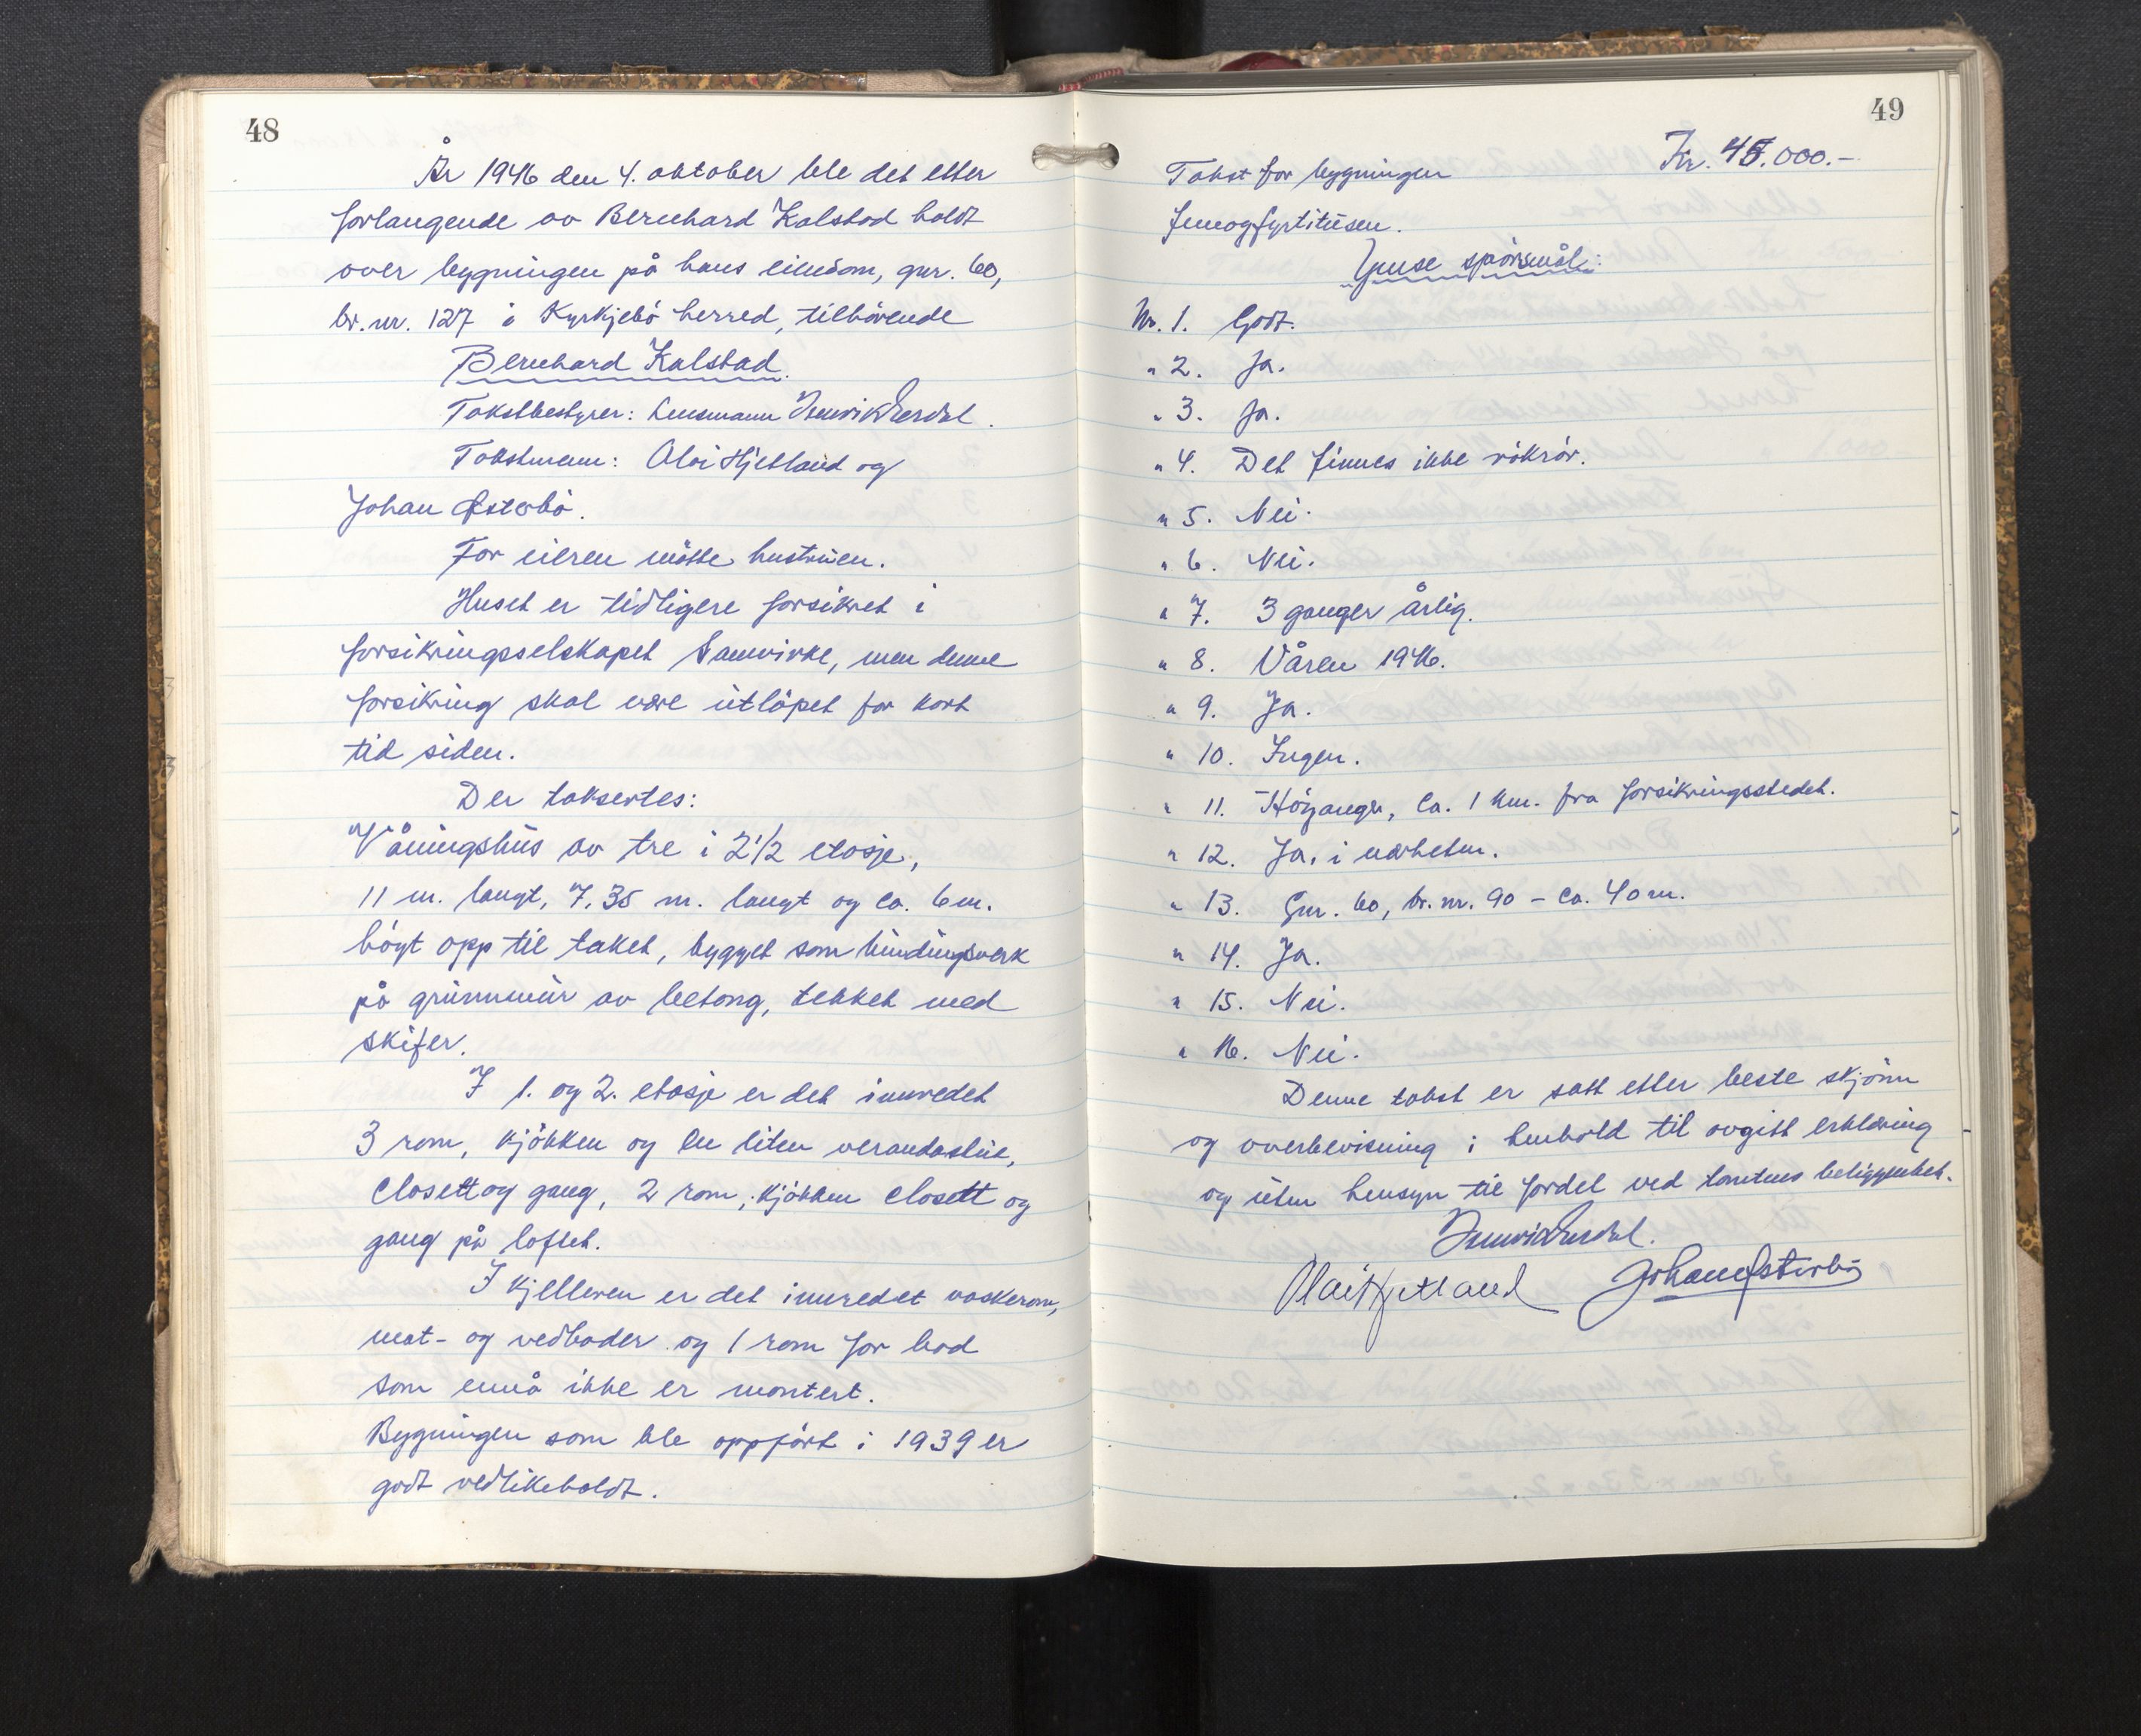 48
År 1946 den 4. oktober ble det etter
forlangende av Bernhard Kalstad holdt
over bygningen på hans eiendom, gnr. 60,
br. nr. 127 i Kyrkjebö herred, tilhörende
Bernhard Kalstad.
Takstbestyrer: Lensmann
Takstmenn: Olai Hjetland og
Johan Østerbö.
For eieren mötte hustruen.
Huset er tidligere forsikret i
forsikringsselskapet Samvirke, men denne
forsikring skal være utlöpet for kort
tid siden.
Der taksertes:
Våningshus av tre i 2 1/2 etasje,
11 m. langt, 7,35 m. langt og ca. 6 m.
höyt opp til taket, bygget som bindingsverk
på grunnmur av betong, tekket med
skifer.
I 1. og 2. etasje er det innredet
3 rom, kjökken og en liten verandastue,
closett og gang, 2 rom, kjökken closett og
gang på loftet.
I kjelleren er det innredet vaskerom,
mat- og vedboder og 1 rom for bad
som ennå ikke er montert.
Bygningen som ble oppfört i 1939 er
godt vedlikeholdt.
49
Takst for bygningen Kr. 45.000.-
femogfyrtitusen.
Ymse spörsmål:
Nr. 1. Godt.
" 2. Ja.
" 3. Ja.
" 4. Det finnes ikke rökrör.
" 5. Nei.
" 6. Nei.
" 7. 3 ganger årlig.
" 8. Våren 1946.
" 9. Ja.
" 10. Ingen.
" 11. Höyanger, ca. 1 km. fra forsikringsstedet.
" 12. Ja, i nærheten.
" 13. Gnr. 60, br. nr. 90 - ca. 40 m.
" 14. Ja.
" 15. Nei.
" 16. Nei.
Denne takst er satt etter beste skjönn
og overbevisning i henhold til avgitt erklæring
og uten hensyn til fordel ved tomtens beliggenhet.
Olai Hjetland Johan Østerbö